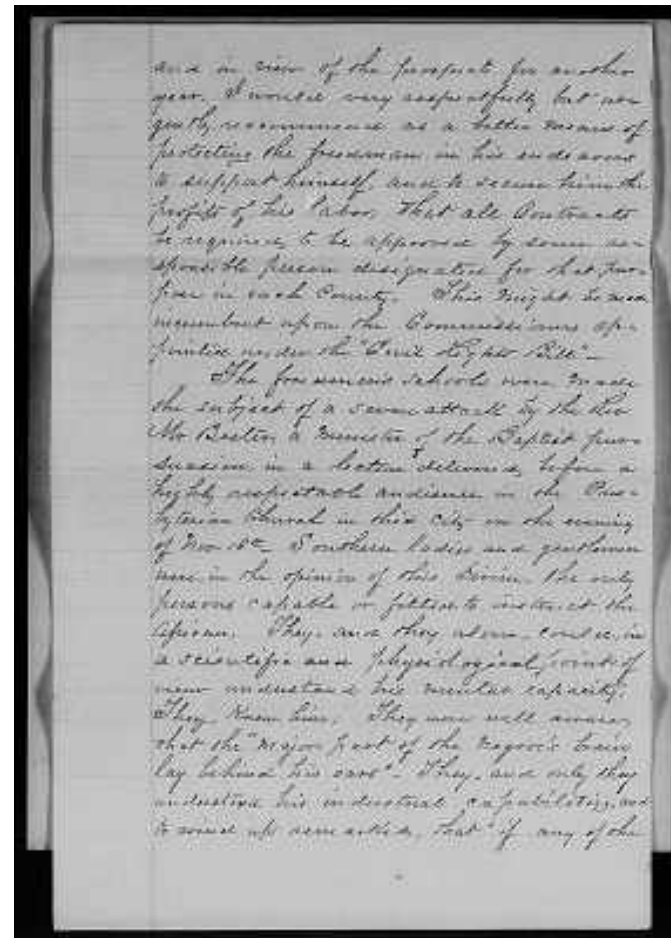 and in view of the prospects for another
year, I would very respectfully but ur-
gently recommend as a better means of
protecting the freedman in his endeavors
to support himself, and to secure him the
profits of his labor, that all Contracts
be required to be approved by some re-
sponsible person designated for that pur-
pose in each County. This might be made
incumbent upon the Commissioners ap-
pointed under the "Civil Rights Bill" -
The freedmen's schools were made
the subject of a severe attack by the Rev
Mr a Minister of the Baptist per-
suasion in a lecture delivered before a
highly respectable audience in the Pres-
byterian Church in this City on the evening
of Nov Southern ladies and gentlemen
were in the opinion of this Divine, the only
persons capable or fitted to instruct the
African. They, and they alone, could in
a scientific and physiological point of
view understand his mental capacity.
They knew him. They were well aware
that the "major part of the Negro's brain
lay behind his ears" - They, and only they
understood his industrial capabilities, and
to wind up remarked, that "if any of the